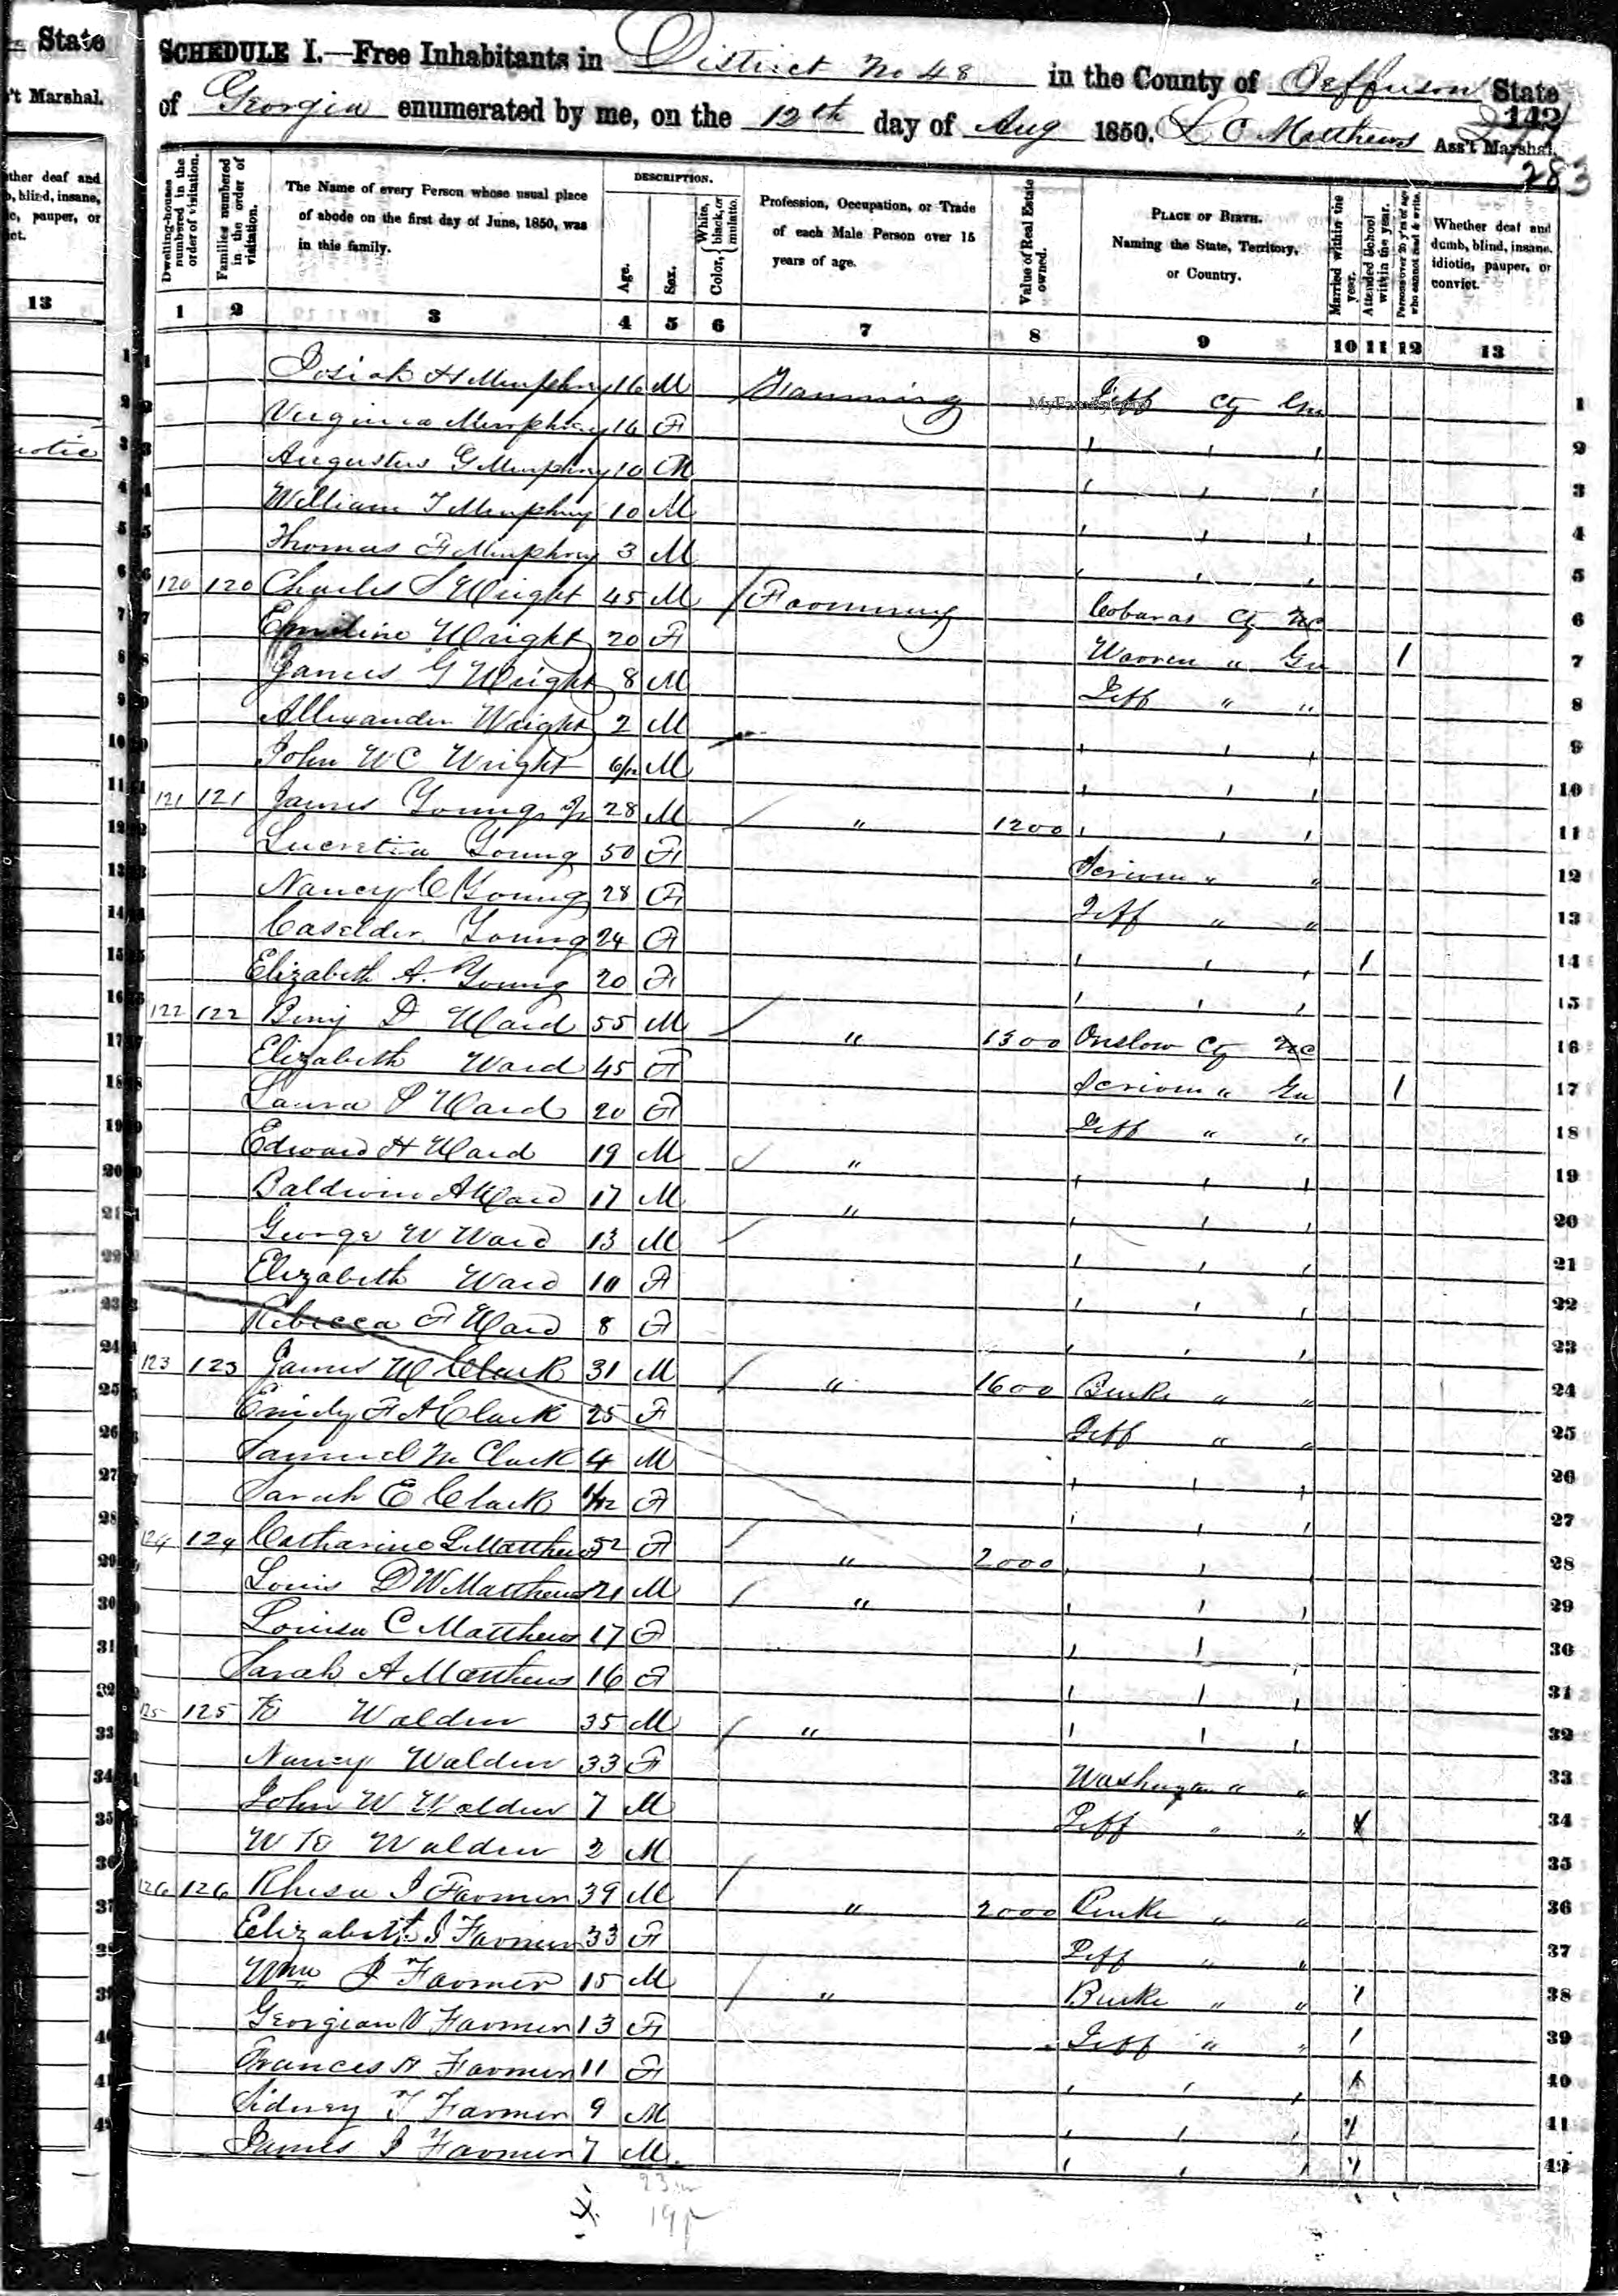 State
't Marshal.
ther deaf and
b, blind, insane,
ic, pauper, or
ict.
13
SCHEDULE I.—Free Inhabitants in District No 48 in the County of Jefferson State
of Georgia enumerated by me, on the 12th day of Aug 1850. L C Matthews Ass't Marshal.
142
283
Dwelling-houses numbered in the order of visitation.
Families numbered in the order of visitation.
The Name of every Person whose usual place of abode on the first day of June, 1850, was in this family.
DESCRIPTION.
Age.
Sex.
Color, { White, black, or mulatto.
Profession, Occupation, or Trade of each Male Person over 15 years of age.
Value of Real Estate owned.
PLACE OF BIRTH. Naming the State, Territory, or Country.
Married within the year.
Attended School within the year.
Persons over 20 y'rs of age who cannot read & write.
Whether deaf and dumb, blind, insane, idiotic, pauper, or convict.
1 2 3 4 5 6 7 8 9 10 11 12 13
1 Josiah H Murphrey 16 M Farming Jeff Cty Ga 1
2 Virginia Murphrey 14 F " " " 2
3 Augustus G Murphrey 10 M " " " 3
4 William T Murphrey 10 M " " " 4
5 Thomas F Murphrey 3 M " " " 5
6 120 120 Charles S Wright 45 M / Farming Cobaras Cty NC 6
7 Emiline Wright 20 F Warren " Ga 1 7
8 James G Wright 8 M Jeff " " 8
9 Allexander Wright 2 M " " " 9
10 John W C Wright 6/12 M " " " 10
11 121 121 James Young Jr 28 M / " 1200 " " " 11
12 Lucretia Young 50 F Scriven " " 12
13 Nancy C Young 28 F Jeff " " 13
14 Caselder Young 24 F " " " 1 14
15 Elizabeth A. Young 20 F " " " 15
16 122 122 Benj D Ward 55 M / " 1300 Onslow Cty NC 16
17 Elizabeth Ward 45 F Scriven " Ga 1 17
18 Laura P Ward 20 F Jeff " " 18
19 Edward H Ward 19 M / " " " " 19
20 Baldwin A Ward 17 M " " " " 20
21 George W Ward 13 M / " " " 21
22 Elizabeth Ward 10 F " " " 22
23 Rebecca F Ward 8 F " " " 23
24 123 123 James W Clark 31 M / " 1600 Burke " " 24
25 Emily F A Clark 25 F Jeff " " 25
26 Samuel M Clark 4 M " " " 26
27 Sarah E Clark 1/12 F " " " 27
28 124 124 Catharine L Matthews 52 F / " 2000 " " 28
29 Louis D W Matthews 21 M / " " " " 29
30 Louisa C Matthews 17 F " " " 30
31 Sarah A Matthews 16 F " " " 31
32 125 125 Walden 35 M / " " " " 32
33 Nancy Walden 33 F Washington " " 33
34 John W Walden 7 M Jeff " " 1 34
35 W Walden 2 M 35
36 126 126 Farmer 39 M / " 2000 Burke " " 36
37 Elizabeth J Farmer 33 F Jeff " " 37
38 Wm J Farmer 15 M / " Burke " " 1 38
39 Georgian V Farmer 13 F Jeff " " 1 39
40 Frances A Farmer 11 F " " " 1 40
41 Sidney T Farmer 9 M " " " 1 41
42 James J Farmer 7 M " " " 1 42
23 m
19 f